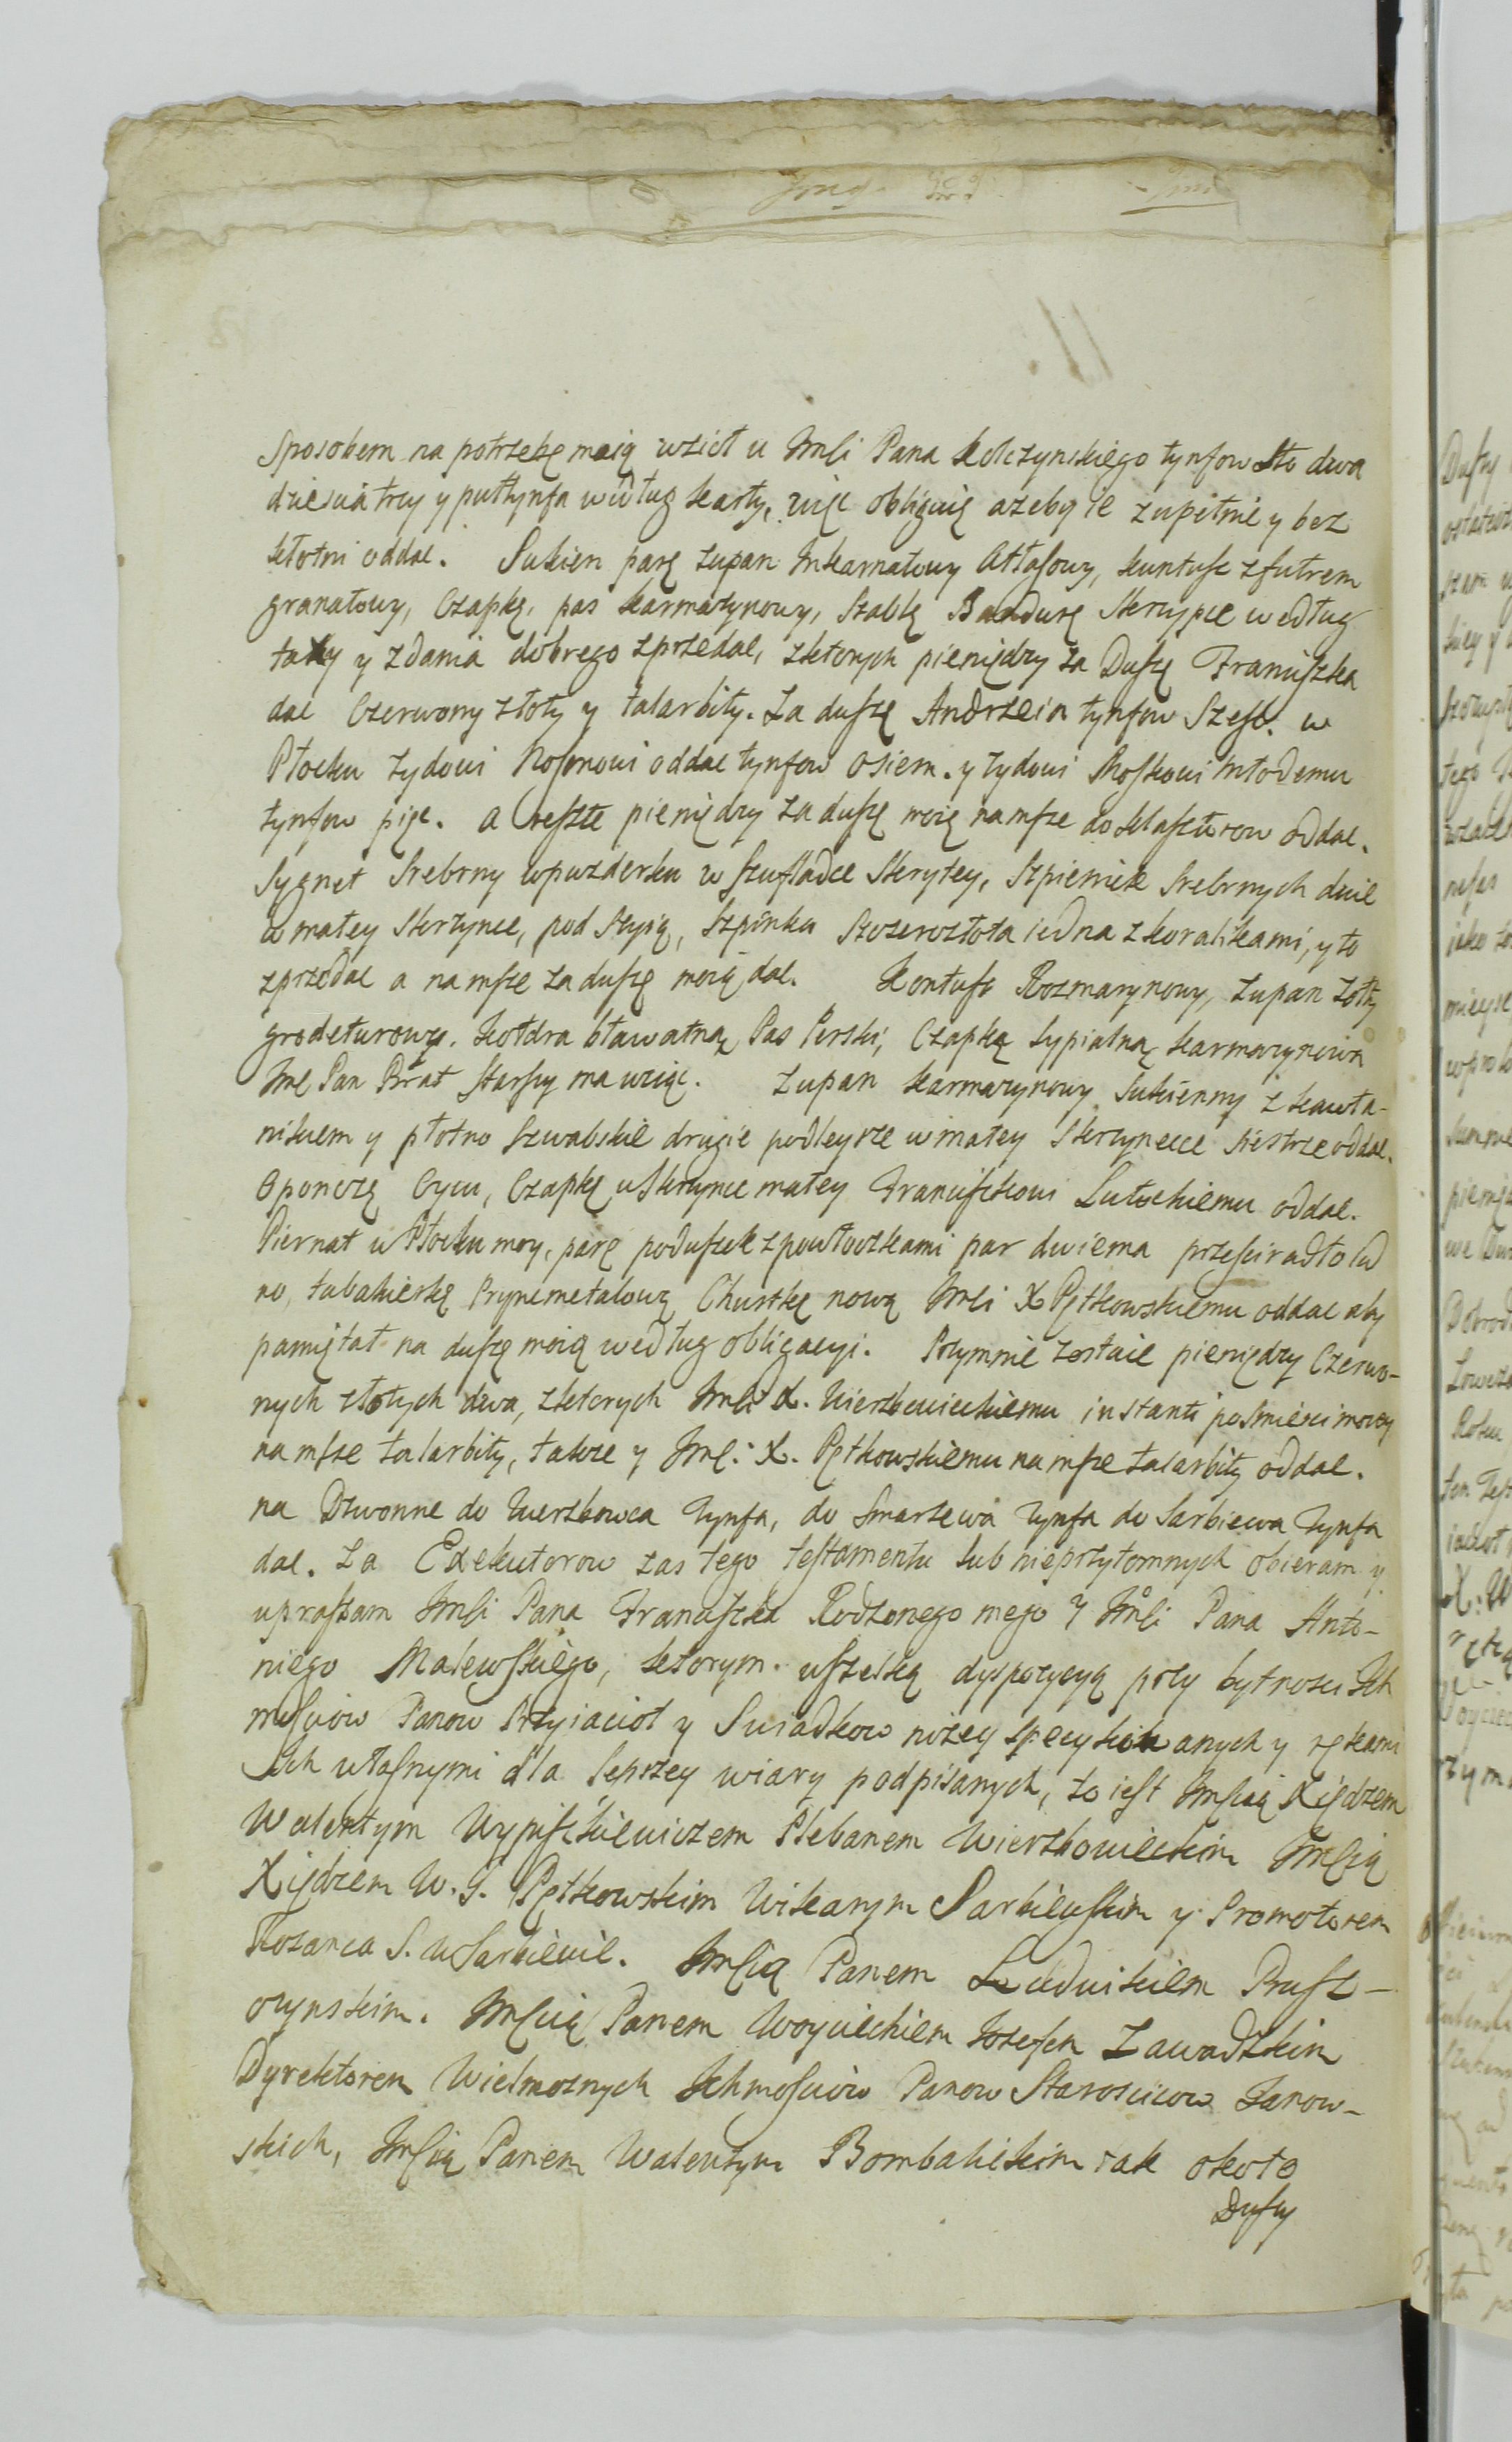 sposobem na potrzebę moią wzioł u Jmści Pana Kolczynskiego tynfow sto dwa
dziescia trzy y pułtynfa według karty, więc obliguię azeby ie zupełnie y bez
kłotni oddac. Sukien parę zupan Inkarnatowy Atłasowy, kuntusz z futrem
granatowy, Czapkę, pas karmazynowy, szablę Bandurę skrzypce według
taxy y zdania dobrego zprzedac, z ktorych pieniędzy za Duszę Franciszka
dac Czerwony złoty y talarbity. Za duszę Andrzeia tynfow szesc. w
Płocku zydowi Nosonowi oddac tynfow osiem. y zydowi Moszkowi młodemu
tynfow pięc. a resztę pieniędzy za duszę moię na msze do klasztorow oddac.
Sygnet srebrny w puzderku w szufladce skrytey, szpieniek srebrnych dwie
w małey skrzynce, pod szyią, szpinka szczerozłota iedna z koralikami, y to
zprzedac a na msze za duszę moię dac. Kontusz Rozmarynowy, zupan zołty
grodeturowy. kołdra bławatna, Pas Perski, Czapkę sypialną karmazynowa
Jmć Pan Brat starszy ma wziąc. Zupan karmazynowy sukienny z kawta-
nikiem y płotno szwabskie drugie podleysze w małey skrzynecce siestrze oddac.
Oponczę Cycu, Czapkę w skrzynce małey Franciszkowi Lutockiemu oddac.
Piernat w Płocku moy, parę poduszek z powłoczkami par dwiema przescieradło ied
no, tabakierkę Pryncmetalową, Chustkę nową Jmści X Pętkowskiemu oddac aby
pamiętał na duszę moię według obligacyi. Przymnie zostaie pieniędzy Czerwo-
nych złotych dwa, z ktorych Jmści X. Wierzbowieckiemu instanti po smierci moiey
na msze talarbity, takze y Jmć. X. Pętkowskiemu na msze talarbity oddac.
na Dzwonne do Wierzbowca Tynfa, do Smarzewa Tynfa do Sarbiewa Tynfa
dac. Za Exekutorow zas tego testamentu lub nieprzytomnych obieram y
upraszam Jmści Pana Franciszka Rodzonego mego y Jmści Pana Anto-
niego Malewskiego, ktorym wszelką dyspozycyą przy bytnosci Ich
mosciow Panow Przyiacioł y Swiadkow nizey specyfikowanych y rękami
Ich własnymi dla lepszey wiary podpisanych, to iest Jmscią Xiędzem
Walentym Wypiszkiewiczem Plebanem Wierzbowieckim Jmscią
Xiędzem W. J. Pętkowskim Wikarym Sarbiewskim y Promotorem
Rozanca S. w Sarbiewie. Jmscią Panem Ludwikiem Prusz-
czynskim. Jmscią Panem Woyciechiem Jozefem Zawadzkim
Dyrektorem Wielmoznych Ichmosciow Panow Staroscicow Janow-
skich, Jmscią Panem Walentym Bombalickim iak około
Duszy